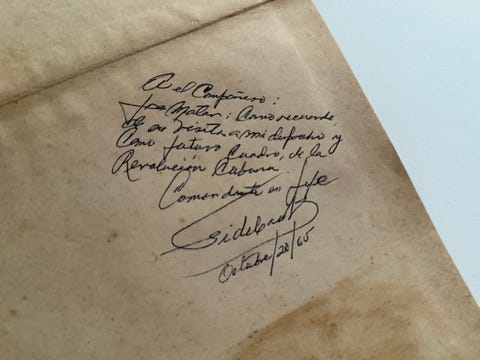 A el Compañero:
Jose Matar: Como recuerdo,
de su visita a mi despacho y
Como futuro Cuadro, de la
Revolución Cubana.
Comandante en Jefe
Fidel Castro
Octubre/20/65